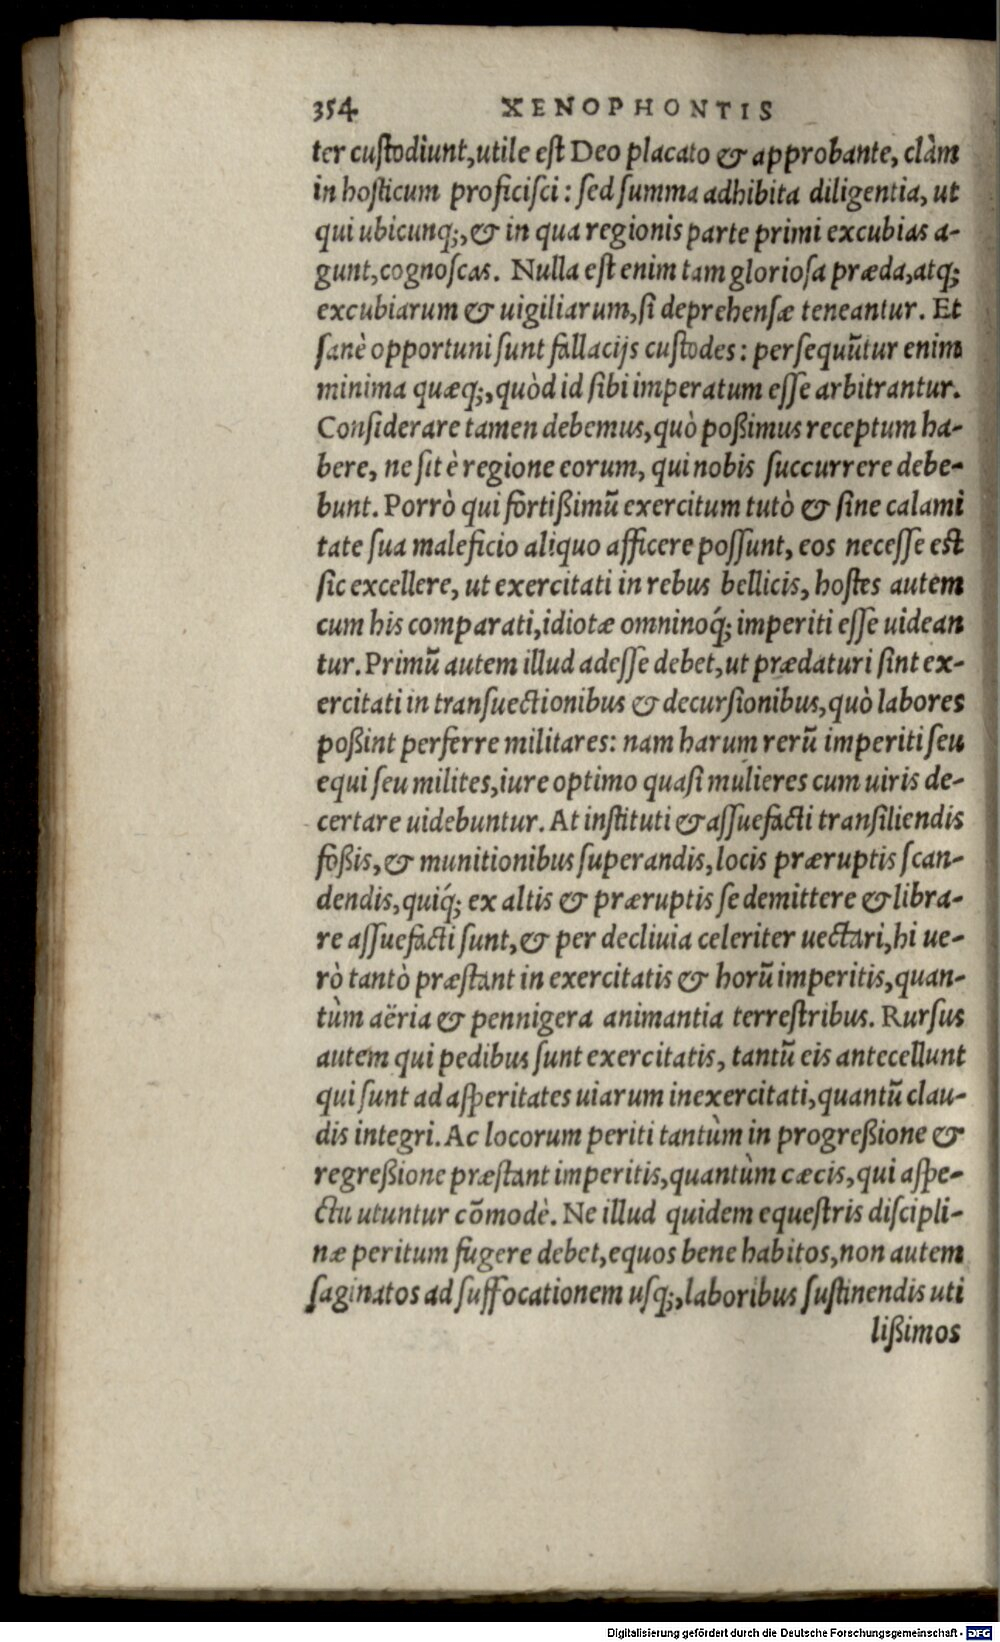 354 XENOPHONTIS
ter custodiunt, utile est Deo placato & approbante, clàm
in hosticum proficisci: sed summa adhibita diligentia, ut
qui ubicunq;, & in qua regionis parte primi excubias a-
gunt, cognoscas. Nulla est enim tam gloriosa præda, atq;
excubiarum & uigiliarum, si deprehensæ teneantur. Et
sanè opportuni sunt fallacijs custodes: persequũtur enim
minima quæq;, quòd id sibi imperatum esse arbitrantur.
Considerare tamen debemus, quò poßimus receptum ha-
bere, ne sit è regione eorum, qui nobis succurrere debe-
bunt. Porrò qui fortißimũ exercitum tutò & sine calami
tate sua maleficio aliquo afficere possunt, eos necesse est
sic excellere, ut exercitati in rebus bellicis, hostes autem
cum his comparati, idiotæ omninoq́; imperiti esse uidean
tur. Primũ autem illud adesse debet, ut prædaturi sint ex-
ercitati in transuectionibus & decursionibus, quò labores
poßint perferre militares: nam harum rerũ imperiti seu
equi seu milites, iure optimo quasi mulieres cum uiris de-
certare uidebuntur. At instituti & assuefacti transiliendis
foßis, & munitionibus superandis, locis præruptis scan-
dendis, quiq́; ex altis & præruptis se demittere & libra-
re assuefacti sunt, & per decliuia celeriter uectari, hi ue-
rò tantò præstant in exercitatis & horũ imperitis, quan-
tùm aëria & pennigera animantia terrestribus. Rursus
autem qui pedibus sunt exercitatis, tantũ eis antecellunt
qui sunt ad asperitates uiarum inexercitati, quantũ clau-
dis integri. Ac locorum periti tantùm in progreßione &
regreßione præstant imperitis, quantùm cæcis, qui aspe-
ctu utuntur cõmodè. Ne illud quidem equestris discipli-
næ peritum fugere debet, equos bene habitos, non autem
saginatos ad suffocationem usq;, laboribus sustinendis uti
lißimos
Digitalisierung gefördert durch die Deutsche Forschungsgemeinschaft - DFG